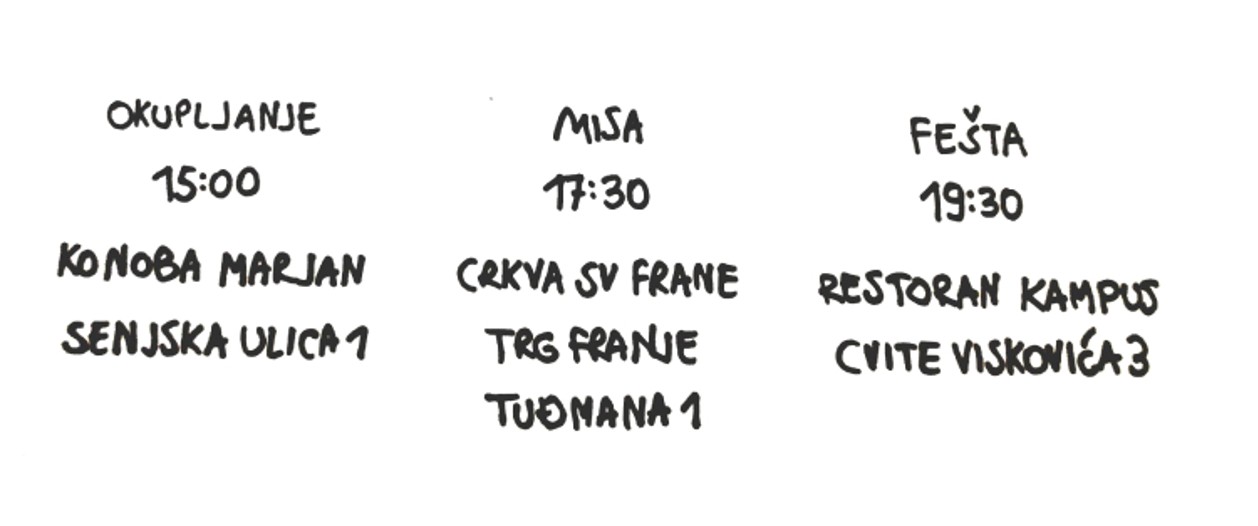 OKUPLJANJE
15:00
KONOBA MARJAN
SENJSKA ULICA 1
MISA
17:30
CRKVA SV FRANE
TRG FRANJE
TUĐMANA 1
FEŠTA
19:30
RESTORAN KAMPUS
CVITE VISKOVIĆA 3